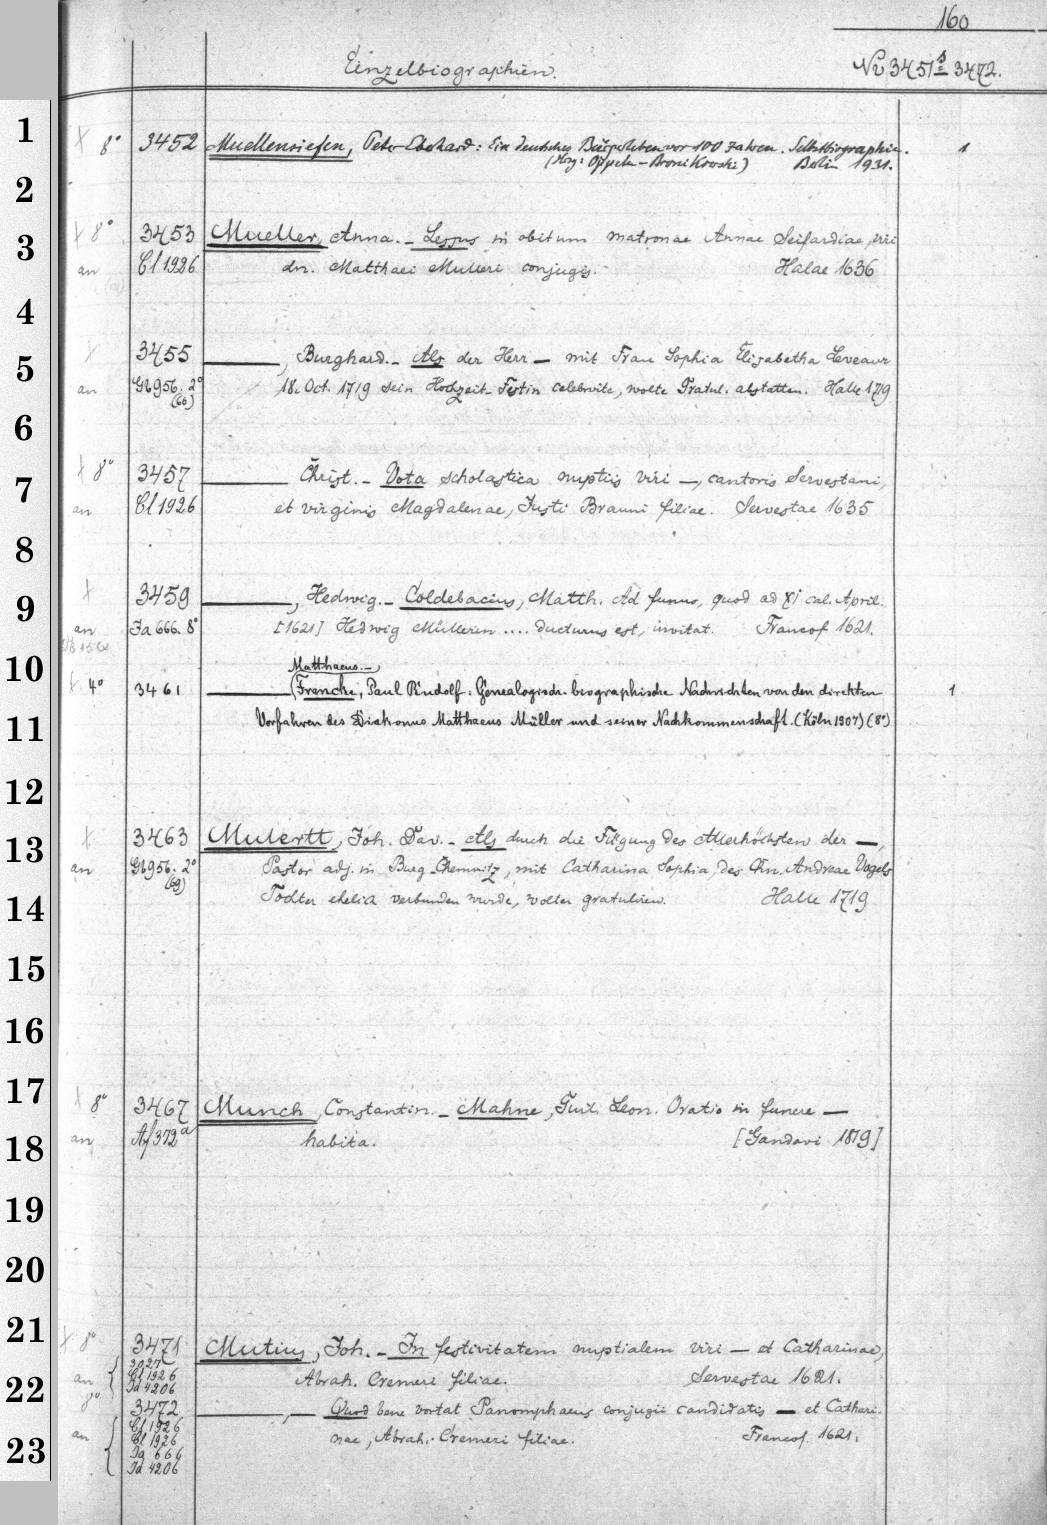 160
Einzelbiographien.
No 3451 s 3472.
1
X 8° 3452 Muellensiefen, Peter Eberhard: Ein deutsches Bürgerleben vor 100 Jahren. Selbstbiographie. 1
(Hrg: Oppeln-Bronikowski) Berlin 1931.
2
X 8° 3453 Mueller, Anna. – Lessus in obitum matronae Annae Seifardiae, viri
3
an Cl 1926 dn. Matthaei Mulleri conjugis. Halae 1636
4
X 3455 ———, Burghard. – Als der Herr — mit Frau Sophia Elisabetha Leveaux
5
an Gb 956. 2° 18. Oct. 1719 sein Hochzeit-Festin celebrite, wolte Gratul. abstatten. Halle 1719
(60)
6
X 8° 3457 ——— Christ. – Vota scholastica nuptiis viri —, cantoris Servestani,
7
an Cl 1926 et virginis Magdalenae, Justi Brauni filiae. Servestae 1635
8
X 3459 ———, Hedwig. – Coldebacius, Matth. Ad funus, quod ad XI cal. April.
9
an Ja 666. 8° [1621] Hedwig Müllerin .... ducturus est, invitat. Francof 1621.
10
Matthaeus. –
4° 3461 ——— (Francke, Paul Rudolf: Genealogisch-biographische Nachrichten von den direkten 1
11
Vorfahren des Diakonus Matthaeus Müller und seiner Nachkommenschaft. (Köln 1907) (8°)
12
X 3463 Mulertt, Joh. Dav. – Als durch die Fügung des Allerhöchsten der —,
13
an Gb 956. 2° Pastor adj. in Burg-Chemnitz, mit Catharina Sophia, des Hn. Andreae Vogels
(69)
14
Tochter ehelich verbunden wurde, wolten gratuliren. Halle 1719
15
16
17
X 8° 3467 Munch, Constantin. – Mahne, Guil. Leon. Oratio in funere —
18
an Af 372a habita. [Gandavi 1819]
19
20
21
X 8° 3471 Mutius, Joh. – In festivitatem nuptialem viri — et Catharinae,
3027
22
an { Cl 1926 Abrah. Cremeri filiae. Servestae 1621.
Id 4206
8° 3472 ———, — Quod bene vortat Panomphaeus conjugii candidatis — et Cathari-
Cl 1926
23
an { Cl 1926 nae, Abrah. Cremeri filiae. Francof. 1621.
Ja 666
Id 4206